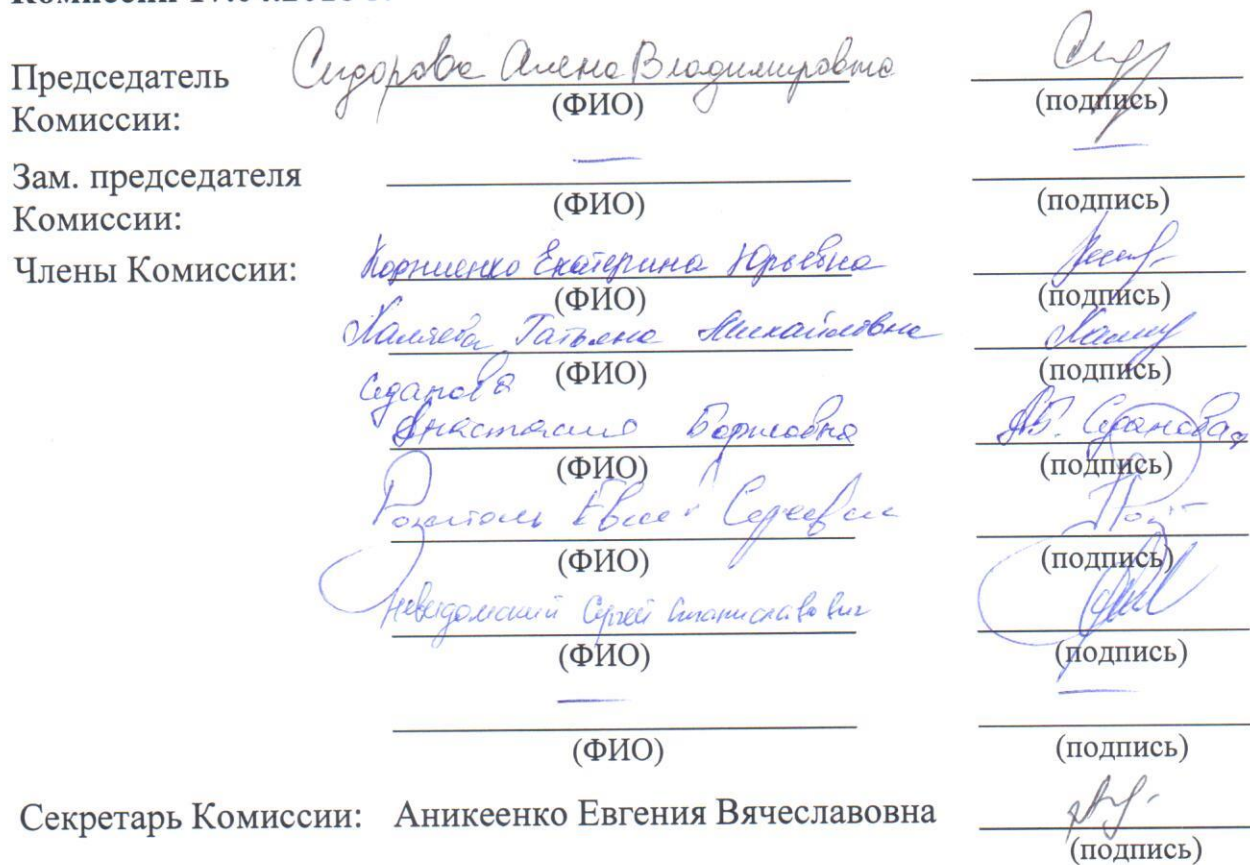 Председатель Сидорова Алена Владимировна
Комиссии: (ФИО) (подпись)
Зам. председателя — —
Комиссии: (ФИО) (подпись)
Члены Комиссии: Корниенко Екатерина Юрьевна
(ФИО) (подпись)
Татьяна Михайловна
(ФИО) (подпись)
Седанова
Анастасия Борисовна А.Б. Седанова
(ФИО) (подпись)
(ФИО) (подпись)
Неведомский Сергей Станиславович
(ФИО) (подпись)
— —
(ФИО) (подпись)
Секретарь Комиссии: Аникеенко Евгения Вячеславовна
(подпись)